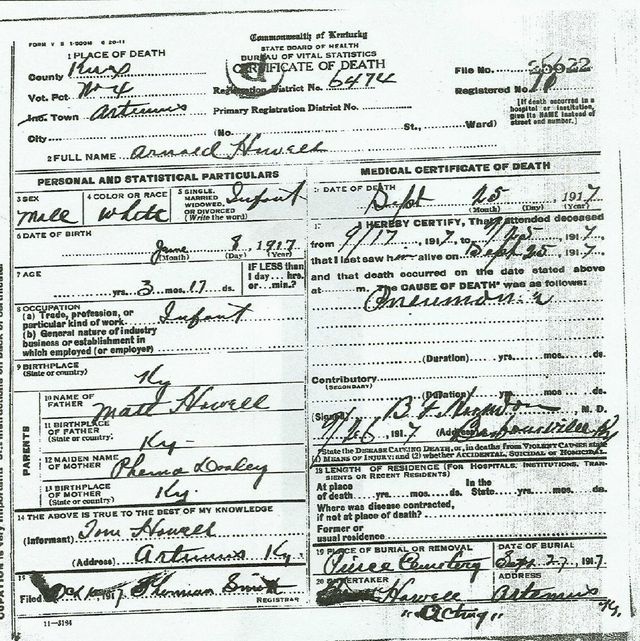 FORM V S 1-500M 6 20-11
Commonwealth of Kentucky
STATE BOARD OF HEALTH
BUREAU OF VITAL STATISTICS
CERTIFICATE OF DEATH
1 PLACE OF DEATH
County Knox
Vot. Pct No 4
Inc. Town Artemus
City
Registration District No. 6474
Primary Registration District No.
(No. St., Ward)
File No. 25622
Registered No.
[If death occurred in a hospital or institution, give its NAME instead of street and number.]
2 FULL NAME Arnold Howell
PERSONAL AND STATISTICAL PARTICULARS
3 SEX Male
4 COLOR OR RACE White
5 SINGLE, MARRIED WIDOWED, OR DIVORCED (Write the word) Infant
6 DATE OF BIRTH
June 8, 1917
(Month) (Day) (Year)
7 AGE
yrs. 3 mos. 17 ds.
IF LESS than 1 day... hrs. or... min.?
8 OCCUPATION
(a) Trade, profession, or particular kind of work Infant
(b) General nature of industry business or establishment in which employed (or employer)
9 BIRTHPLACE
(State or country) Ky
PARENTS
10 NAME OF FATHER Matt Howell
11 BIRTHPLACE OF FATHER (State or country) Ky
12 MAIDEN NAME OF MOTHER
13 BIRTHPLACE OF MOTHER (State or country) Ky.
14 THE ABOVE IS TRUE TO THE BEST OF MY KNOWLEDGE
(Informant) Tom Howell
(Address) Artemus Ky
15
Filed 1917 Smith
REGISTRAR
11-3194
MEDICAL CERTIFICATE OF DEATH
DATE OF DEATH
Sept 25, 1917
(Month) (Day) (Year)
I HEREBY CERTIFY, That I attended deceased
from 9/17, 1917, to 9/25, 1917,
that I last saw h alive on Sept 25, 1917,
and that death occurred on the date stated above
at m. The CAUSE OF DEATH* was as follows:
Pneumonia
(Duration) yrs. mos. ds.
Contributory
(SECONDARY)
(Duration) yrs. mos. ds.
(Signed) B. F. M. D.
9/26, 1917 (Address) Barbourville Ky
*State the DISEASE CAUSING DEATH, or, in deaths from VIOLENT CAUSES state (1) MEANS OF INJURY; and (2) whether ACCIDENTAL, SUICIDAL or HOMICIDAL.
18 LENGTH OF RESIDENCE (FOR HOSPITALS, INSTITUTIONS, TRANSIENTS OR RECENT RESIDENTS)
At place of death yrs. mos. ds. In the State yrs. mos. ds.
Where was disease contracted, if not at place of death?
Former or usual residence
19 PLACE OF BURIAL OR REMOVAL
Cemetery
DATE OF BURIAL
Sept 27, 1917
20 UNDERTAKER
Howell
"Acting"
ADDRESS
Artemus Ky.